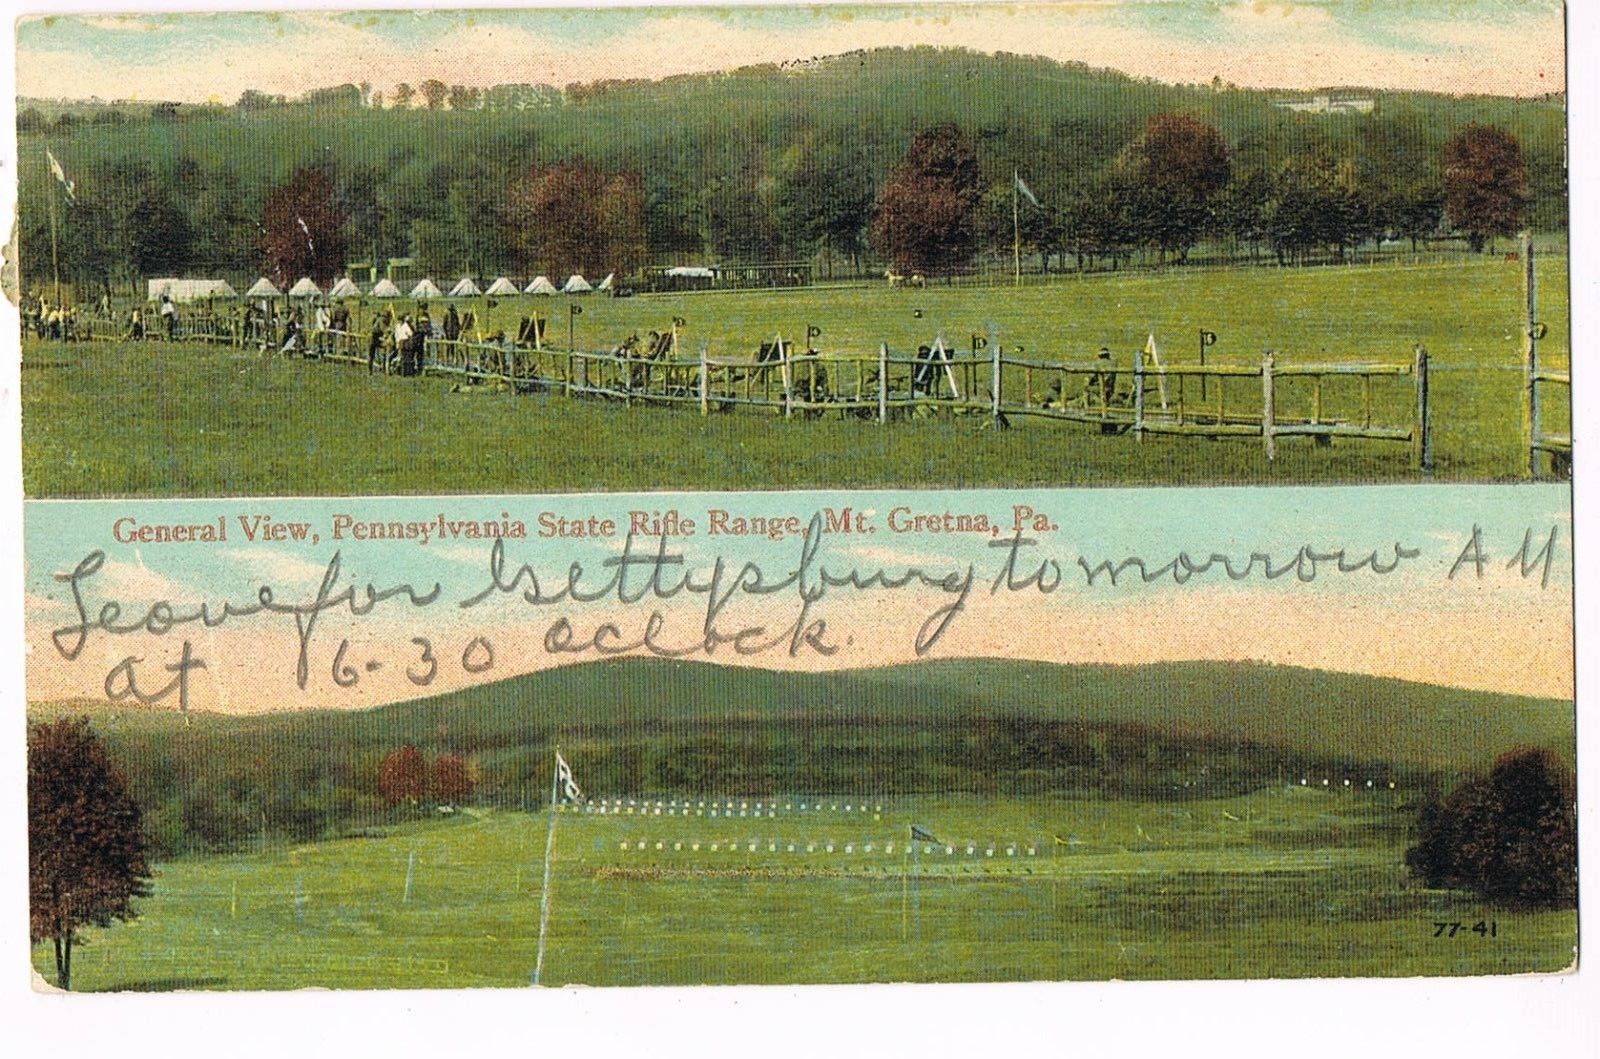 General View, Pennsylvania State Rifle Range, Mt. Gretna, Pa.
Leave for Gettysburg tomorrow AM
at 6-30 oclock.
77-41